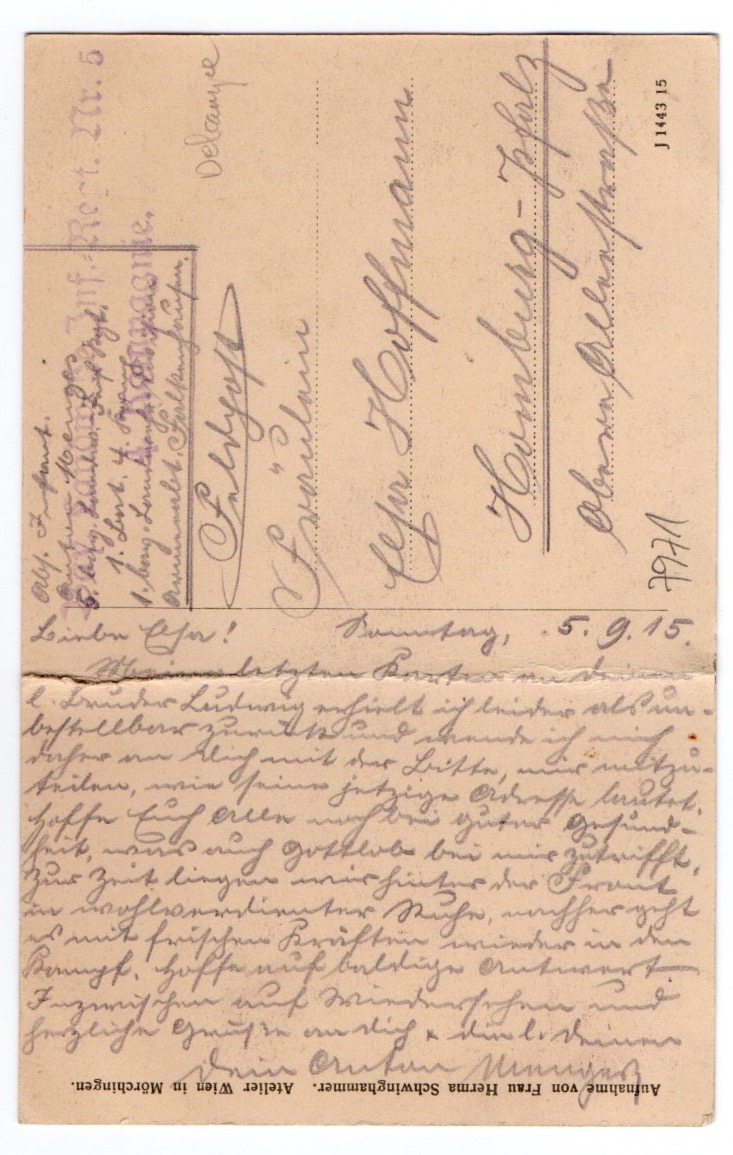 Bay. Landw. Inf.-Regt. Nr. 5
Kompagnie.
Abs. Infant.
Anton Menges
5. bayr. Landw. Inf. Regt.
1. Batl. 4. Komp.
1. bayr. Landwehr
Armeeabt. Falkenhausen.
Delcanyce
Feldpost
Fräulein
Elsa Hoffmann
Homburg-Pfalz
Obere Alleestraße
J 1443 15
7971
Liebe Elsa! Sonntag, 5.9.15.
Meine letzten Karten an Deinen
l. Bruder Ludwig erhielt ich leider als un-
bestellbar zurück und wende ich mich
daher an Dich mit der Bitte, mir mitzu-
teilen, wie seine jetzige Adresse lautet.
Hoffe Euch Alle noch bei guter Gesund-
heit, was auch Gottlob bei mir zutrifft.
Zur Zeit liegen wir hinter der Front
in wohlverdienter Ruhe, nachher geht
es mit frischen Kräften wieder in den
Kampf. Hoffe auf baldige Antwort.
Inzwischen auf Wiedersehen und
herzliche Grüße an Dich & die l. Deinen
Dein Anton Menges
Aufnahme von Frau Herma Schwinghammer. Atelier Wien in Mörchingen.